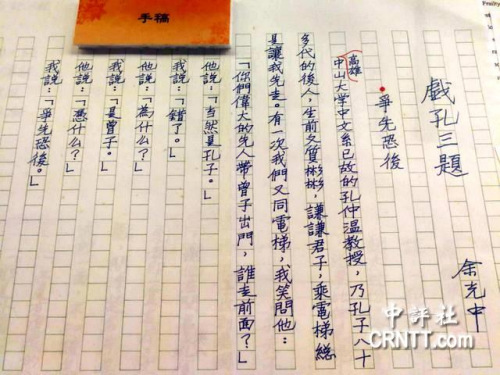 手稿
戲孔三題
余光中
爭先恐後
高雄
中山大学中文系已故的孔仲温教授，乃孔子八十
多代的後人，生前文質彬彬，謙謙君子，乘電梯總
是讓我先走。有一次我們又同電梯，我笑問他：
「你們偉大的先人帶曾子出門，誰走前面？」
他說：「当然是孔子。」
我說：「錯了。」
我說：「是曾子。」
他說：「為什么？」
他說：「憑什么？」
我說：「爭先恐後。」
中評社
CRNTT.com